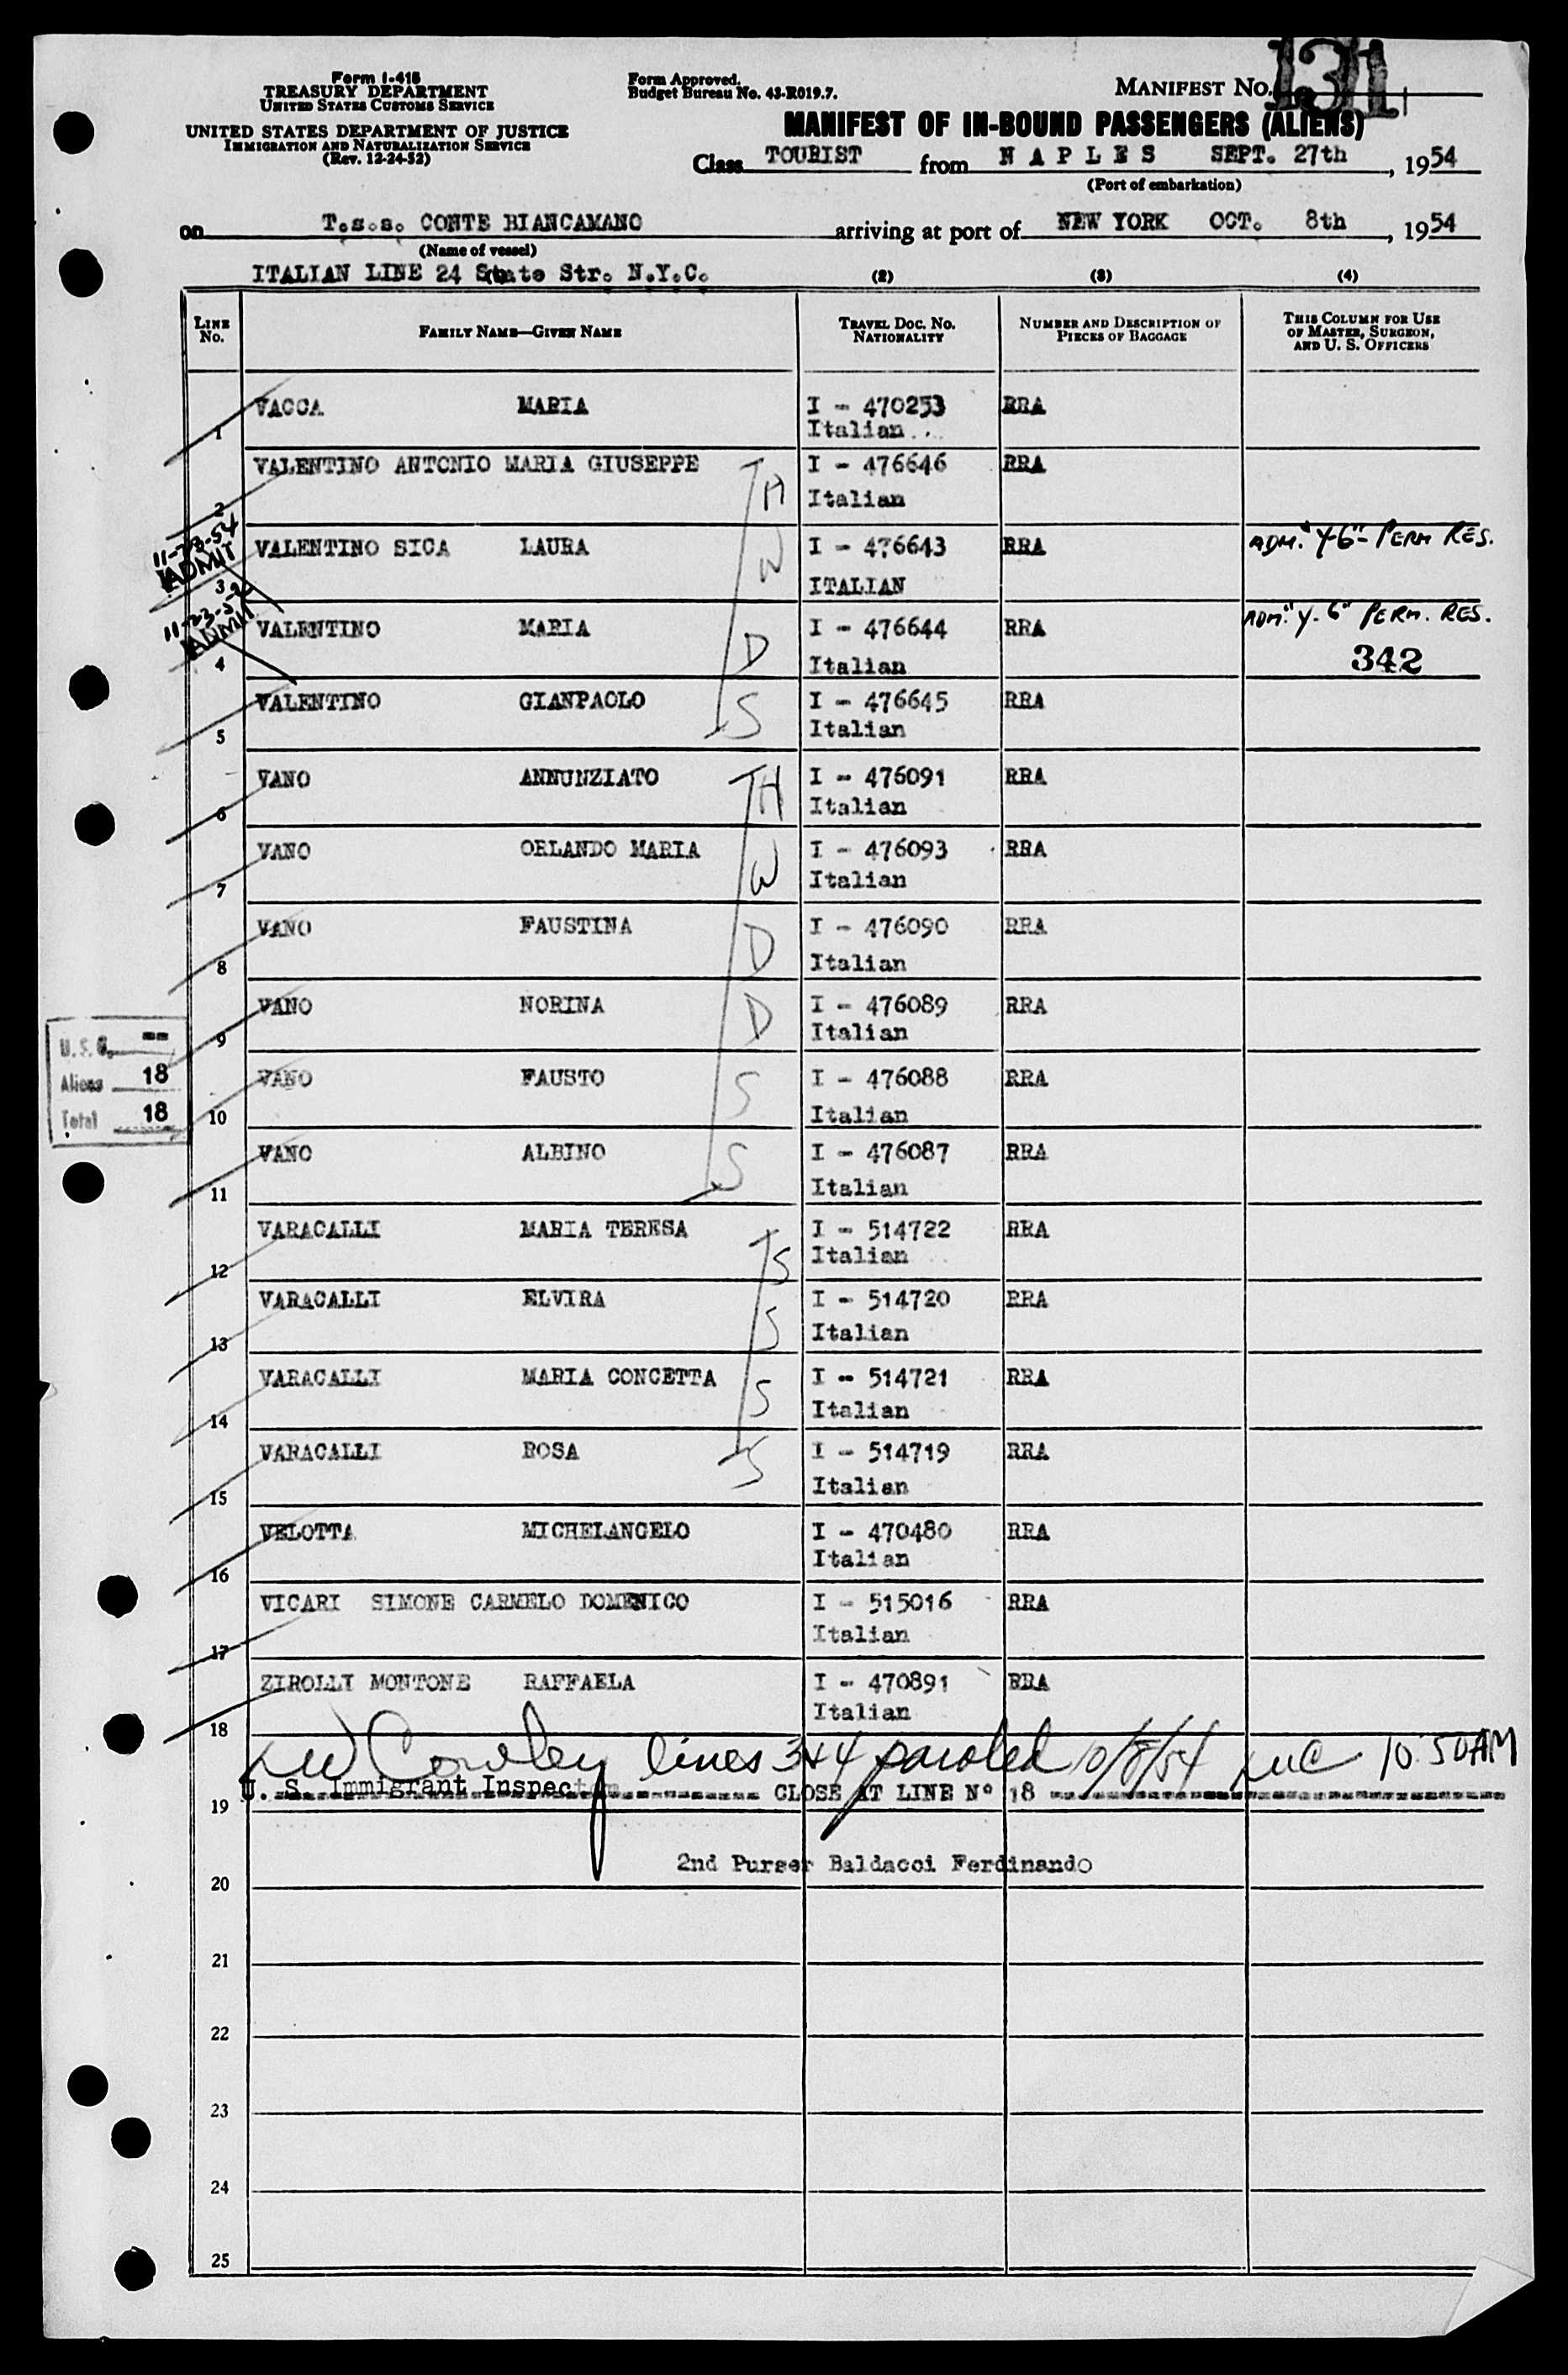 Form I-418
TREASURY DEPARTMENT
UNITED STATES CUSTOMS SERVICE
UNITED STATES DEPARTMENT OF JUSTICE
IMMIGRATION AND NATURALIZATION SERVICE
(Rev. 12-24-52)
Form Approved.
Budget Bureau No. 43-R019.7.
MANIFEST NO. 131
MANIFEST OF IN-BOUND PASSENGERS (ALIENS)
Class TOURIST from N A P L E S SEPT. 27th, 1954
(Port of embarkation)
on T.s.s. CONTE BIANCAMANO arriving at port of NEW YORK OCT. 8th, 1954
(Name of vessel)
ITALIAN LINE 24 State Str. N.Y.C. (2) (3) (4)
LINE NO. FAMILY NAME—GIVEN NAME TRAVEL DOC. NO. NATIONALITY NUMBER AND DESCRIPTION OF PIECES OF BAGGAGE THIS COLUMN FOR USE OF MASTER, SURGEON, AND U. S. OFFICERS
1 VACCA MARIA I - 470253 RRA
Italian
2 VALENTINO ANTONIO MARIA GIUSEPPE H I - 476646 RRA
Italian
11-23-54 ADMIT
3 VALENTINO SICA LAURA W I - 476643 RRA ADM. "Y-6"- PERM RES.
ITALIAN
11-23-54 ADMIT
4 VALENTINO MARIA D I - 476644 RRA ADM. "Y-6" PERM. RES.
Italian 342
5 VALENTINO GIANPAOLO S I - 476645 RRA
Italian
6 VANO ANNUNZIATO H I - 476091 RRA
Italian
7 VANO ORLANDO MARIA W I - 476093 RRA
Italian
8 VANO FAUSTINA D I - 476090 RRA
Italian
9 VANO NORINA D I - 476089 RRA
Italian
U.S.C. --
Aliens 18
Total 18
10 VANO FAUSTO S I - 476088 RRA
Italian
11 VANO ALBINO S I - 476087 RRA
Italian
12 VARACALLI MARIA TERESA S I - 514722 RRA
Italian
13 VARACALLI ELVIRA S I - 514720 RRA
Italian
14 VARACALLI MARIA CONCETTA S I - 514721 RRA
Italian
15 VARACALLI ROSA S I - 514719 RRA
Italian
16 VELOTTA MICHELANGELO I - 470480 RRA
Italian
17 VICARI SIMONE CARMELO DOMENICO I - 515016 RRA
Italian
18 ZIROLLI MONTONE RAFFAELA I - 470891 RRA
Italian
Cowley lines 3+4 paroled 10/8/54 10:50AM
U. S. Immigrant Inspector CLOSE AT LINE Nº 18
19
2nd Purser Baldacci Ferdinando
20
21
22
23
24
25